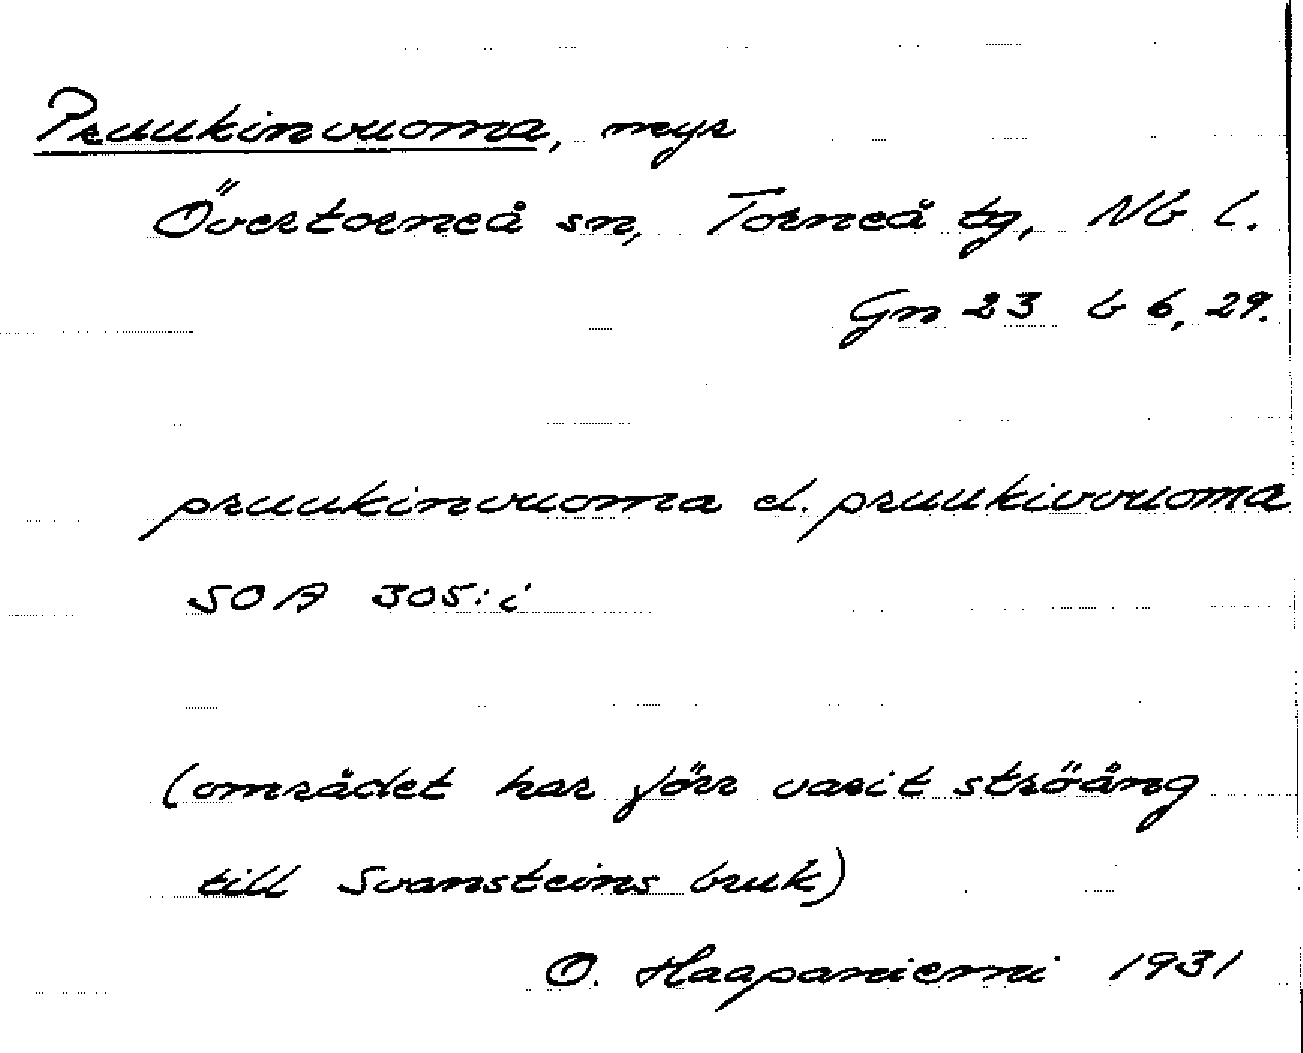 Pruukinvuoma, myr
Övertorneå sn, Torneå tg, Nb l.
Gn 23 b 6, 29.
pruukinvuoma el. pruukivvuoma
SOA 305:i
(området har förr varit ströäng
till Svansteins bruk)
O. Haapaniemi 1931